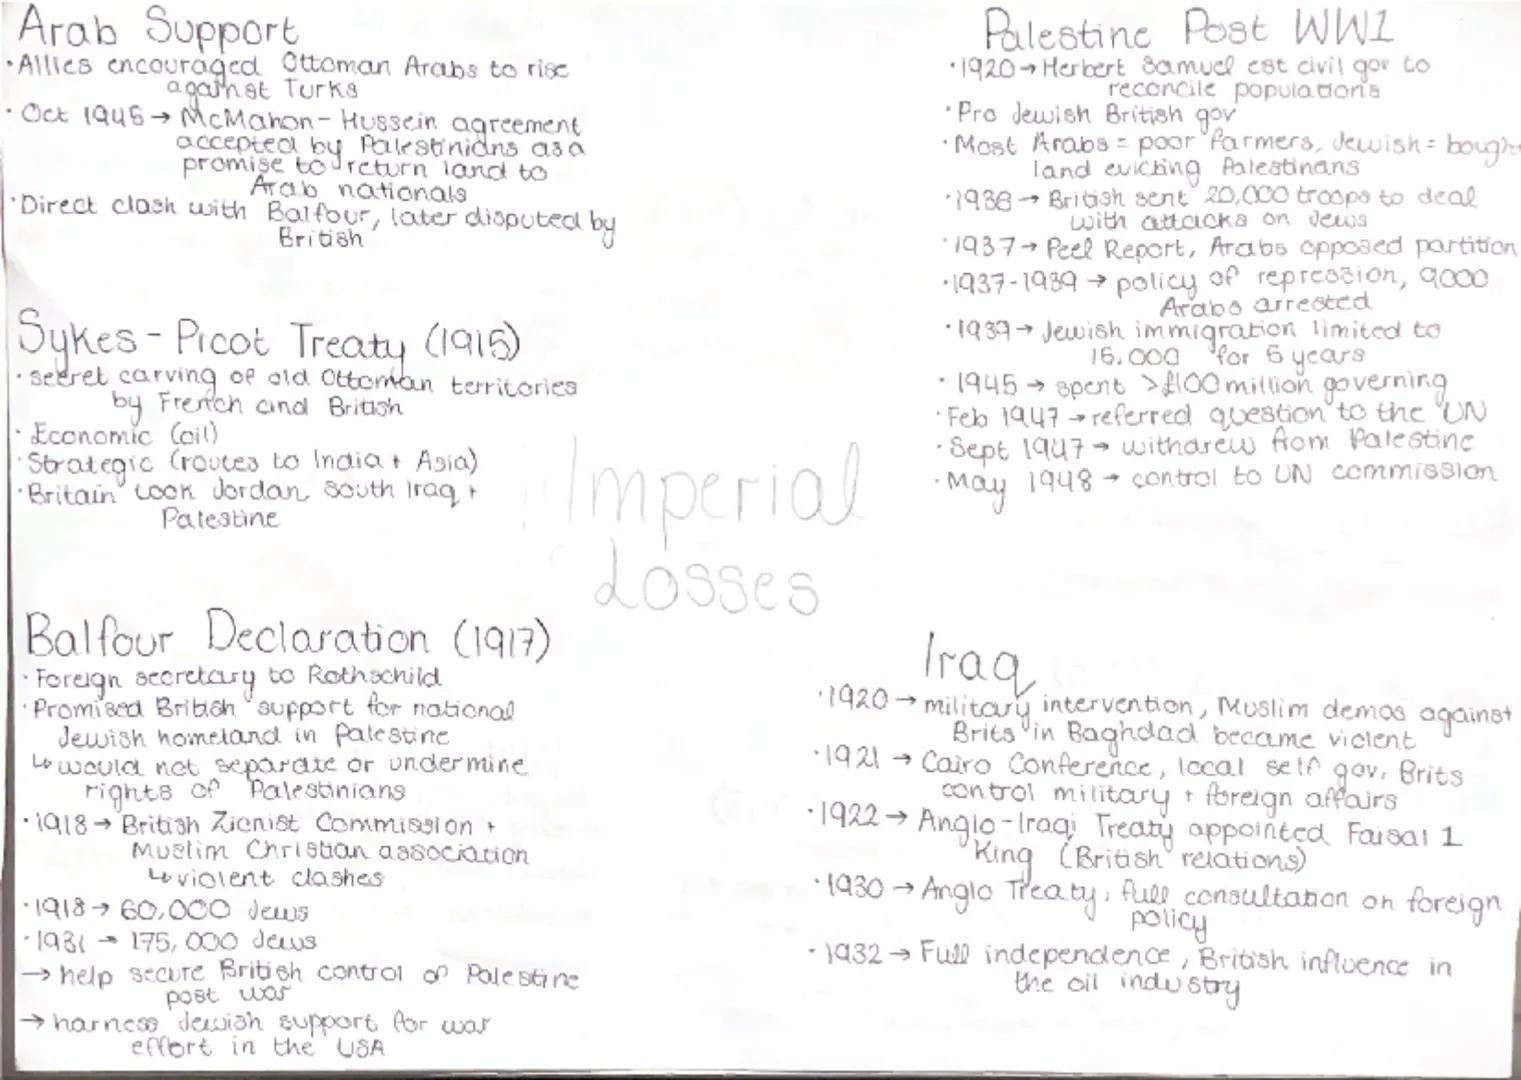 Arab Support
·Allies encouraged Ottoman Arabs to rise
against Turks
·Oct 1945 → McMahon - Hussein agreement
accepted by Palestinians as a
promise to return land to
Arab nationals
·Direct clash with Balfour, later disputed by
British
Sykes - Picot Treaty (1916)
·secret carving of old Ottoman territories
by French and British
·Economic (oil)
·Strategic (routes to India + Asia)
·Britain took Jordan, South Iraq +
Palestine
Balfour Declaration (1917)
·Foreign secretary to Rothschild
·Promised British support for national
Jewish homeland in Palestine
↳ would not separate or undermine
rights of Palestinians
·1918 → British Zionist Commission +
Muslim Christian association
↳ violent clashes
·1918 → 60,000 Jews
·1931 → 175,000 Jews
→ help secure British control of Palestine
post war
→ harness Jewish support for war
effort in the USA
Imperial
Losses
Palestine Post WW1
·1920 → Herbert Samuel est civil gov to
reconcile populations
·Pro Jewish British gov
·Most Arabs = poor farmers, Jewish = bought
land evicting Palestinans
·1936 → British sent 20,000 troops to deal
with attacks on Jews
·1937 → Peel Report, Arabs opposed partition
·1937-1939 → policy of repression, 9000
Arabs arrested
·1939 → Jewish immigration limited to
15.000 for 5 years
·1945 → spent >£100 million governing
·Feb 1947 → referred question to the UN
·Sept 1947 → withdrew from Palestine
·May 1948 → control to UN commission
Iraq
·1920 → military intervention, Muslim demos against
Brits in Baghdad became violent
·1921 → Cairo Conference, local self gov, Brits
control military + foreign affairs
·1922 → Anglo-Iraqi Treaty appointed Faisal 1
King (British relations)
·1930 → Anglo Treaty, full consultation on foreign
policy
·1932 → Full independence, British influence in
the oil industry